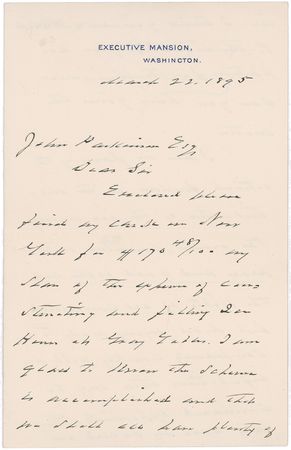 EXECUTIVE MANSION,
WASHINGTON.
March 22. 1895
John Parkinson Esq
Dear Sir
Enclosed please
find my check on New
York for $170 48/100 my
share of the expense of con-
structing and filling Ice
House at Gray Gables. I am
glad to know the scheme
is accomplished and that
we shall all have plenty of